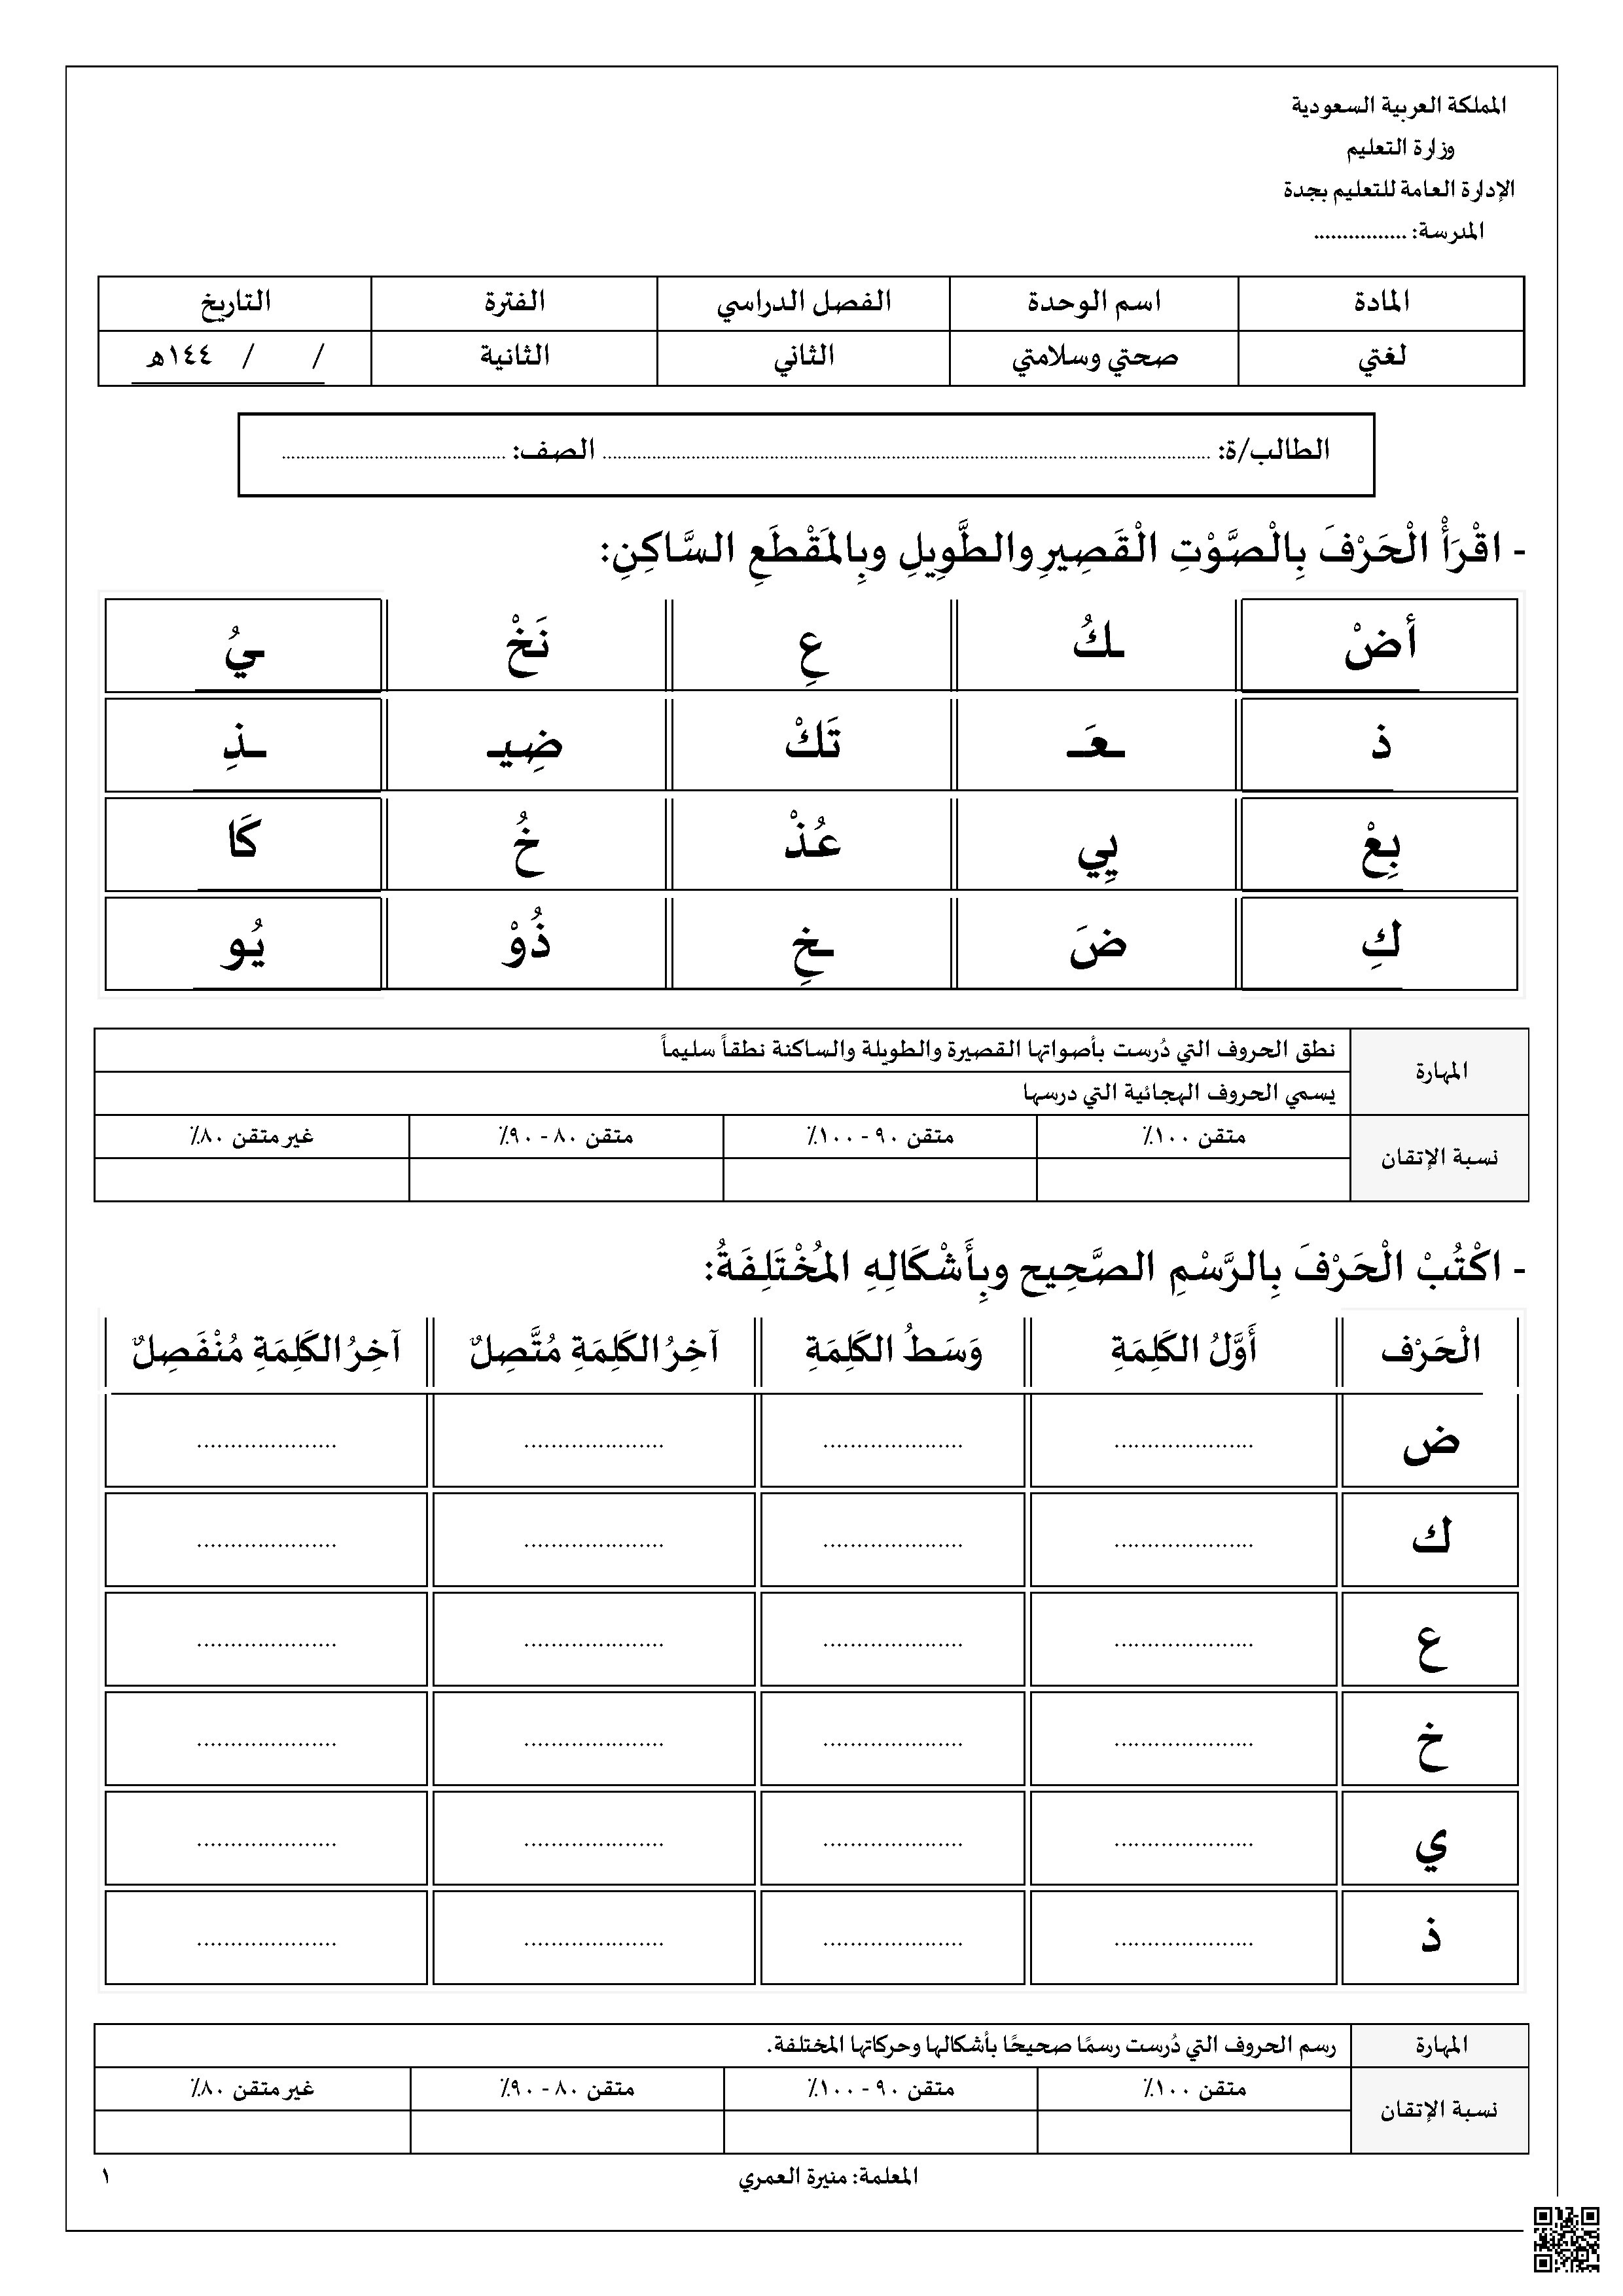 المملكة العربية السعودية
وزارة التعليم
الإدارة العامة للتعليم بجدة
المدرسة: ................
المادة اسم الوحدة الفصل الدراسي الفترة التاريخ
لغتي صحتي وسلامتي الثاني الثانية / / ١٤٤هـ
الطالب/ة: ........................................ الصف: ....................
- اقْرَأْ الْحَرْفَ بِالْصَّوْتِ الْقَصِيرِ والطَّوِيلِ وبِالمَقْطَعِ السَّاكِنِ:
أضْ ـكُ عِ نَخْ ـيُ
ذ ـعَـ تَكْ ضِيـ ـذِ
بِعْ يِي عُذْ خُ كَا
كِ ضَ ـخِ ذُوْ يُو
المهارة نطق الحروف التي دُرست بأصواتها القصيرة والطويلة والساكنة نطقاً سليماً
يسمي الحروف الهجائية التي درسها
نسبة الإتقان متقن ١٠٠٪ متقن ٩٠ - ١٠٠٪ متقن ٨٠ - ٩٠٪ غير متقن ٨٠٪
- اكْتُبْ الْحَرْفَ بِالرَّسْمِ الصَّحِيح وبِأَشْكَالِهِ المُخْتَلِفَةُ:
الْحَرْف أَوَّلُ الكَلِمَةِ وَسَطُ الكَلِمَةِ آخِرُ الكَلِمَةِ مُتَّصِلٌ آخِرُ الكَلِمَةِ مُنْفَصِلٌ
ض ..................... ..................... ..................... .....................
ك ..................... ..................... ..................... .....................
ع ..................... ..................... ..................... .....................
خ ..................... ..................... ..................... .....................
ي ..................... ..................... ..................... .....................
ذ ..................... ..................... ..................... .....................
المهارة رسم الحروف التي دُرست رسمًا صحيحًا بأشكالها وحركاتها المختلفة.
نسبة الإتقان متقن ١٠٠٪ متقن ٩٠ - ١٠٠٪ متقن ٨٠ - ٩٠٪ غير متقن ٨٠٪
المعلمة: منيرة العمري
١